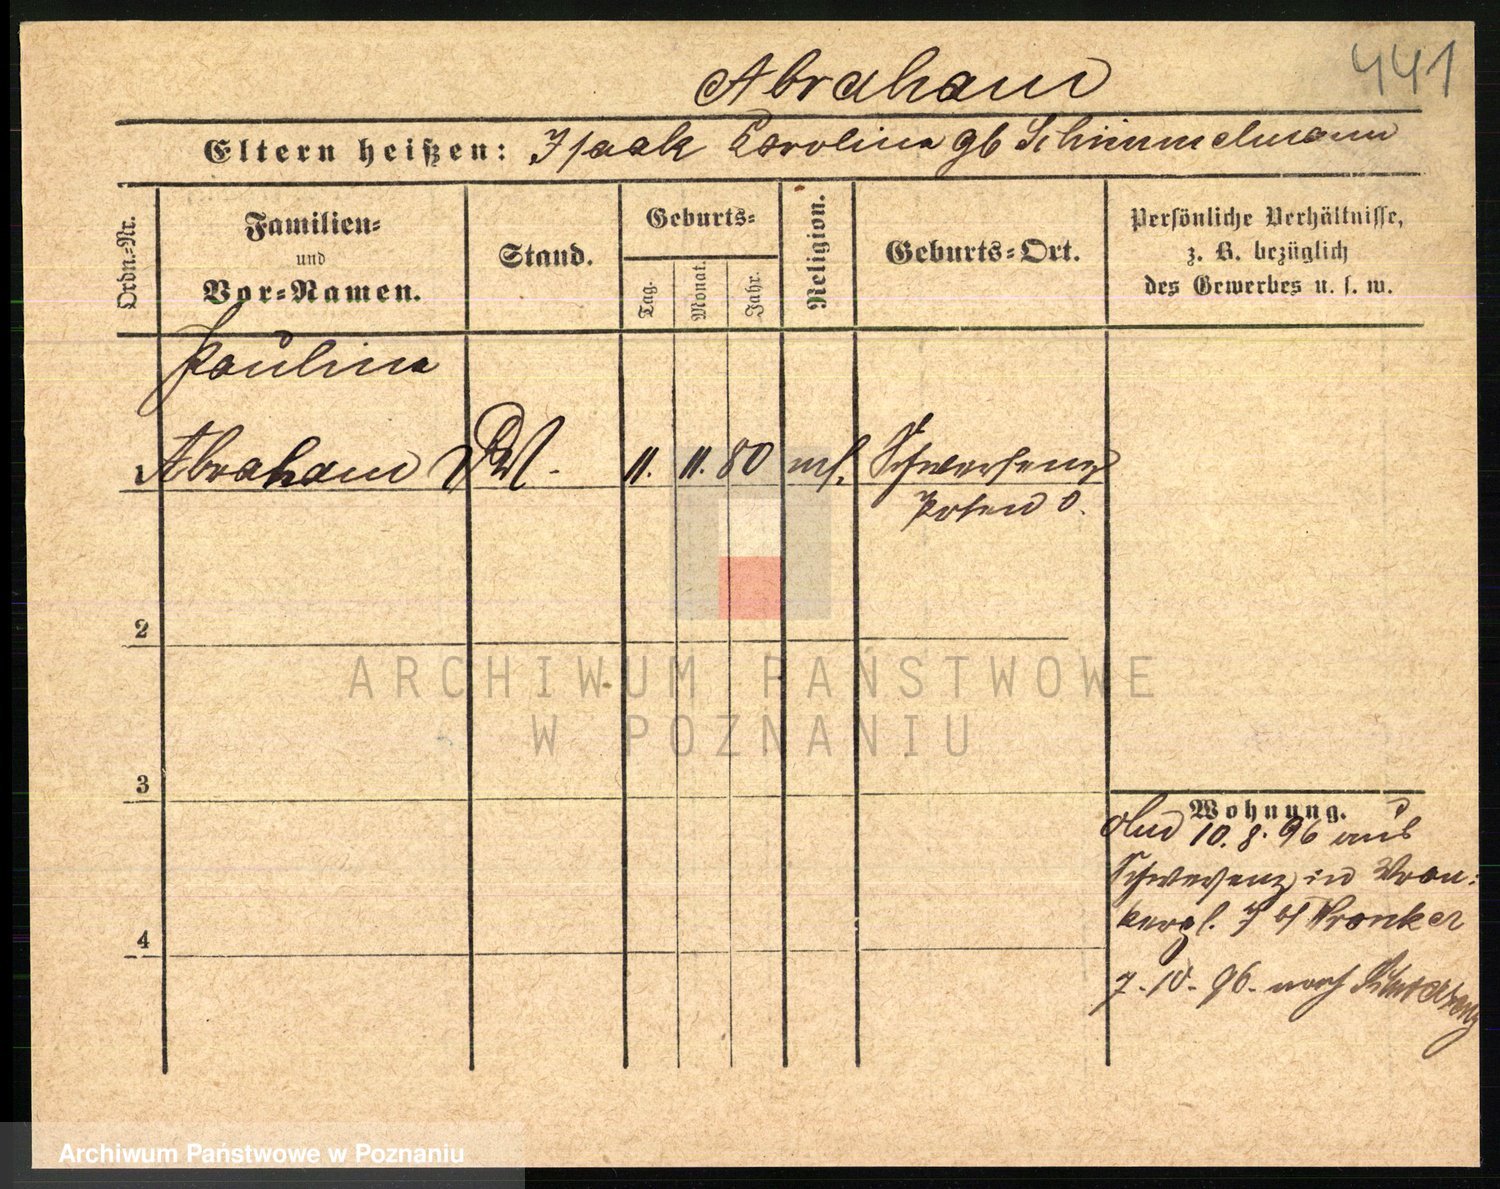 441
Abraham
Eltern heißen: Isaak Carolina gb Schimmelmann
Ordn.-Nr.
Familien- und Vor-Namen.
Stand.
Geburts-
Tag.
Monat.
Jahr.
Religion.
Geburts-Ort.
Persönliche Verhältnisse,
z. B. bezüglich
des Gewerbes u. s. w.
Paulina
1 Abraham
11. 11. 80 mos. Schwersenz
Posen O.
2
3
4
Wohnung.
10. 8. 96 aus
Schwersenz in
7 bei Kronker
7. 10. 96. nach Schwersenz
ARCHIWUM PAŃSTWOWE
W POZNANIU
Archiwum Państwowe w Poznaniu